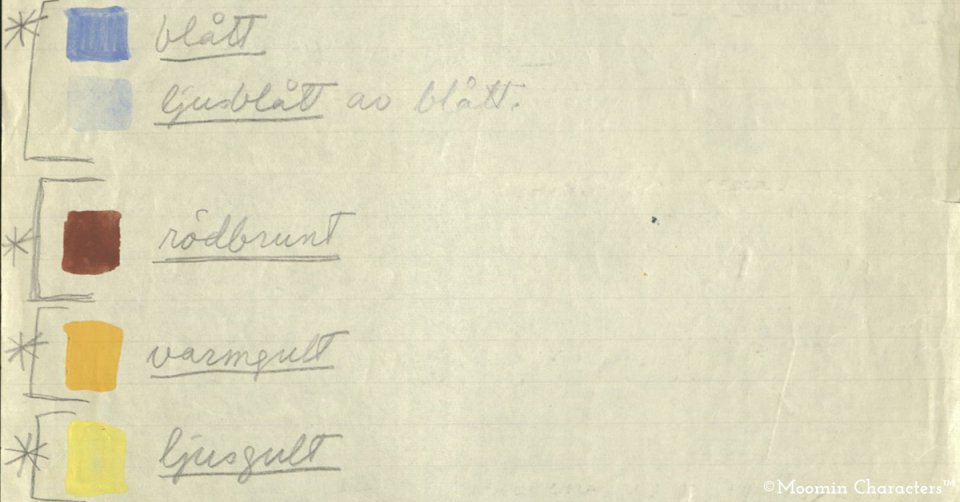 blått
ljusblått av blått.
rödbrunt
varmgult
ljusgult
©Moomin Characters™